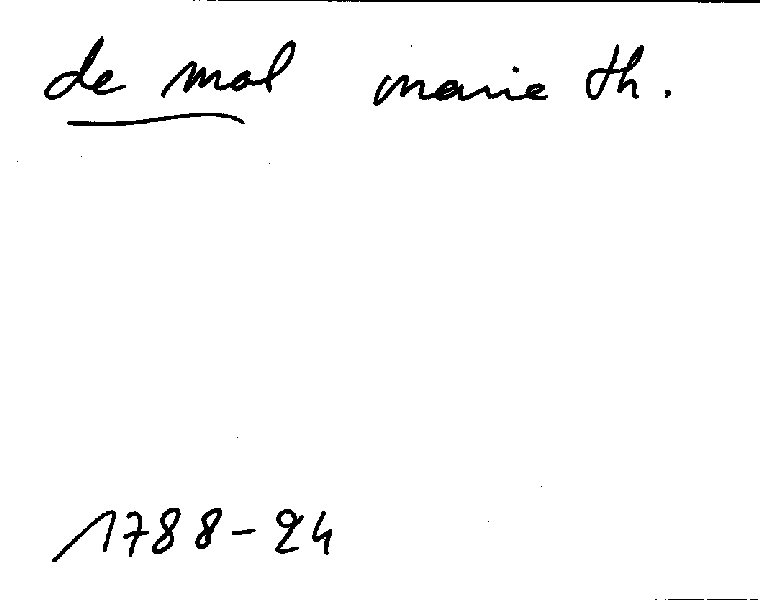 de mal marie th.
1788-24